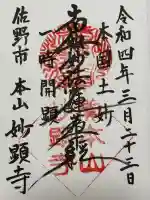 令和四年三月二十三日
本国土妙
南無妙法蓮華経
一時開顕
佐野市 本山 妙顕寺